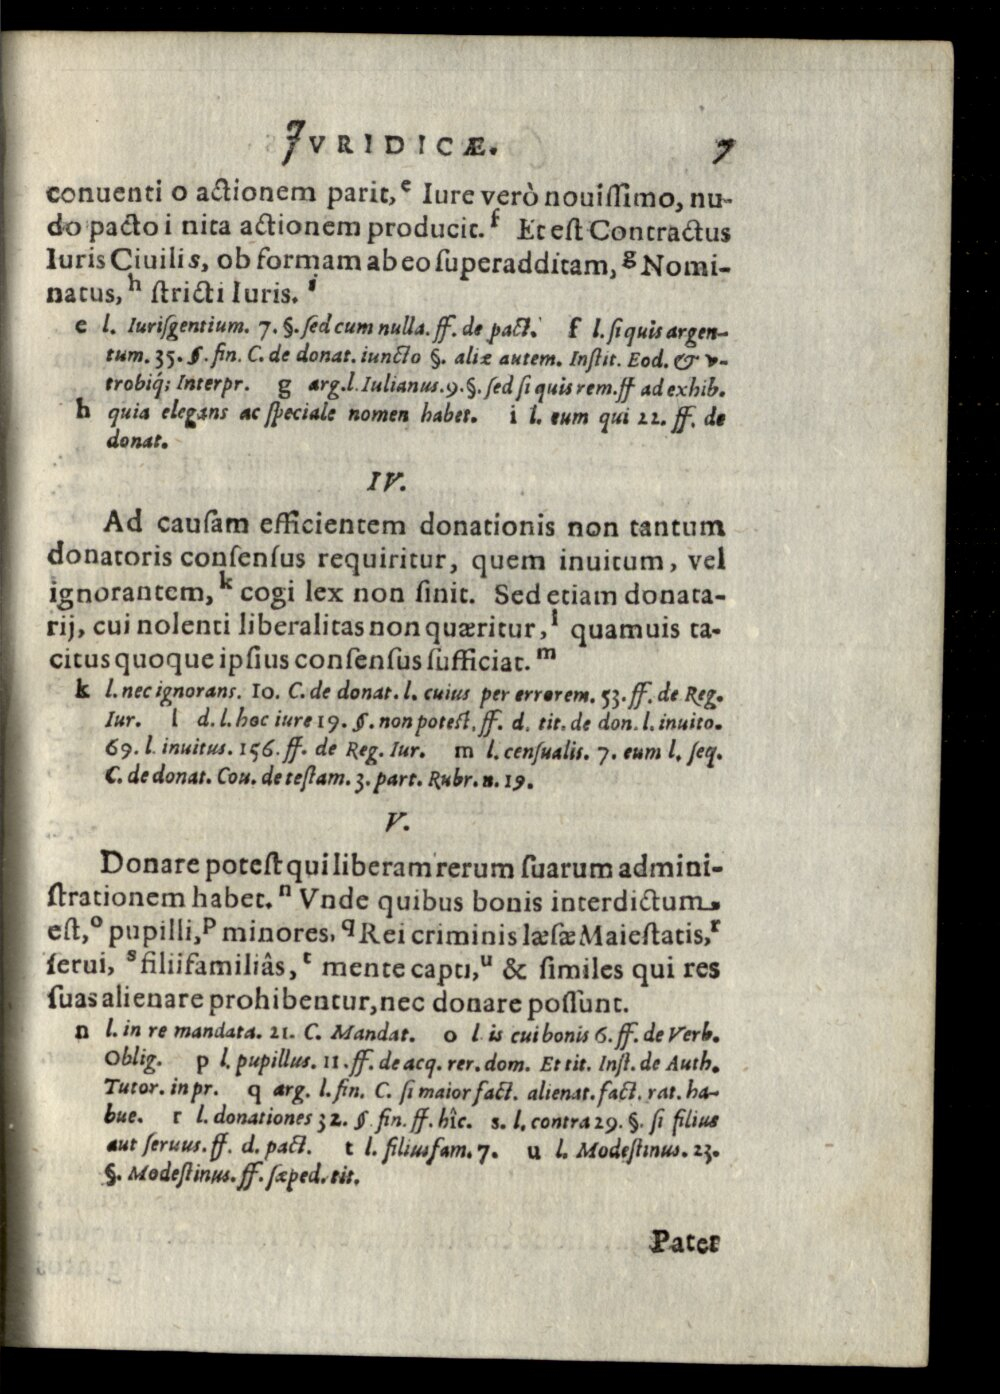 JVRIDICÆ. 7
conuenti o actionem parit,ᵉ Iure verò nouiſſimo, nu-
do pacto i nita actionem producit.ᶠ Et eſt Contractus
Iuris Ciuilis, ob formam ab eo ſuperadditam,ᵍ Nomi-
natus,ʰ ſtricti Iuris.ⁱ
e l. Iuriſgentium. 7. §. ſed cum nulla. ff. de pact. f l. ſi quis argen-
tum. 35. §. fin. C. de donat. iuncto §. aliæ autem. Inſtit. Eod. & v-
trobiq́; Interpr. g arg. l. Iulianus. 9. §. ſed ſi quis rem. ff ad exhib.
h quia elegans ac ſpeciale nomen habet. i l. eum qui 22. ff. de
donat.
IV.
Ad cauſam efficientem donationis non tantum
donatoris conſenſus requiritur, quem inuitum, vel
ignorantem,ᵏ cogi lex non ſinit. Sed etiam donata-
rij, cui nolenti liberalitas non quæritur,ˡ quamuis ta-
citus quoque ipſius conſenſus ſufficiat.ᵐ
k l. nec ignorans. 10. C. de donat. l. cuius per errorem. 53. ff. de Reg.
Iur. l d. l. hoc iure 19. §. non poteſt. ff. d. tit. de don. l. inuito.
69. l. inuitus. 156. ff. de Reg. Iur. m l. cenſualis. 7. eum l. ſeq.
C. de donat. Cou. de teſtam. 3. part. Rubr. n. 19.
V.
Donare poteſt qui liberam rerum ſuarum admini-
ſtrationem habet.ⁿ Vnde quibus bonis interdictum
eſt,ᵒ pupilli,ᵖ minores,q Rei criminis læſæ Maieſtatis,ʳ
ſerui,ˢ filiifamiliâs,ᵗ mente capti,ᵘ & ſimiles qui res
ſuas alienare prohibentur, nec donare poſſunt.
n l. in re mandata. 21. C. Mandat. o l. is cui bonis 6. ff. de Verb.
Oblig. p l. pupillus. 11. ff. de acq. rer. dom. Et tit. Inſt. de Auth.
Tutor. in pr. q arg. l. fin. C. ſi maior fact. alienat. fact. rat. ha-
bue. r l. donationes 32. § fin. ff. hîc. s. l. contra 29. §. ſi filius
aut ſeruus. ff. d. pact. t l. filiusfam. 7. u l. Modeſtinus. 23.
§. Modeſtinus. ff. ſæped. tit.
Pater